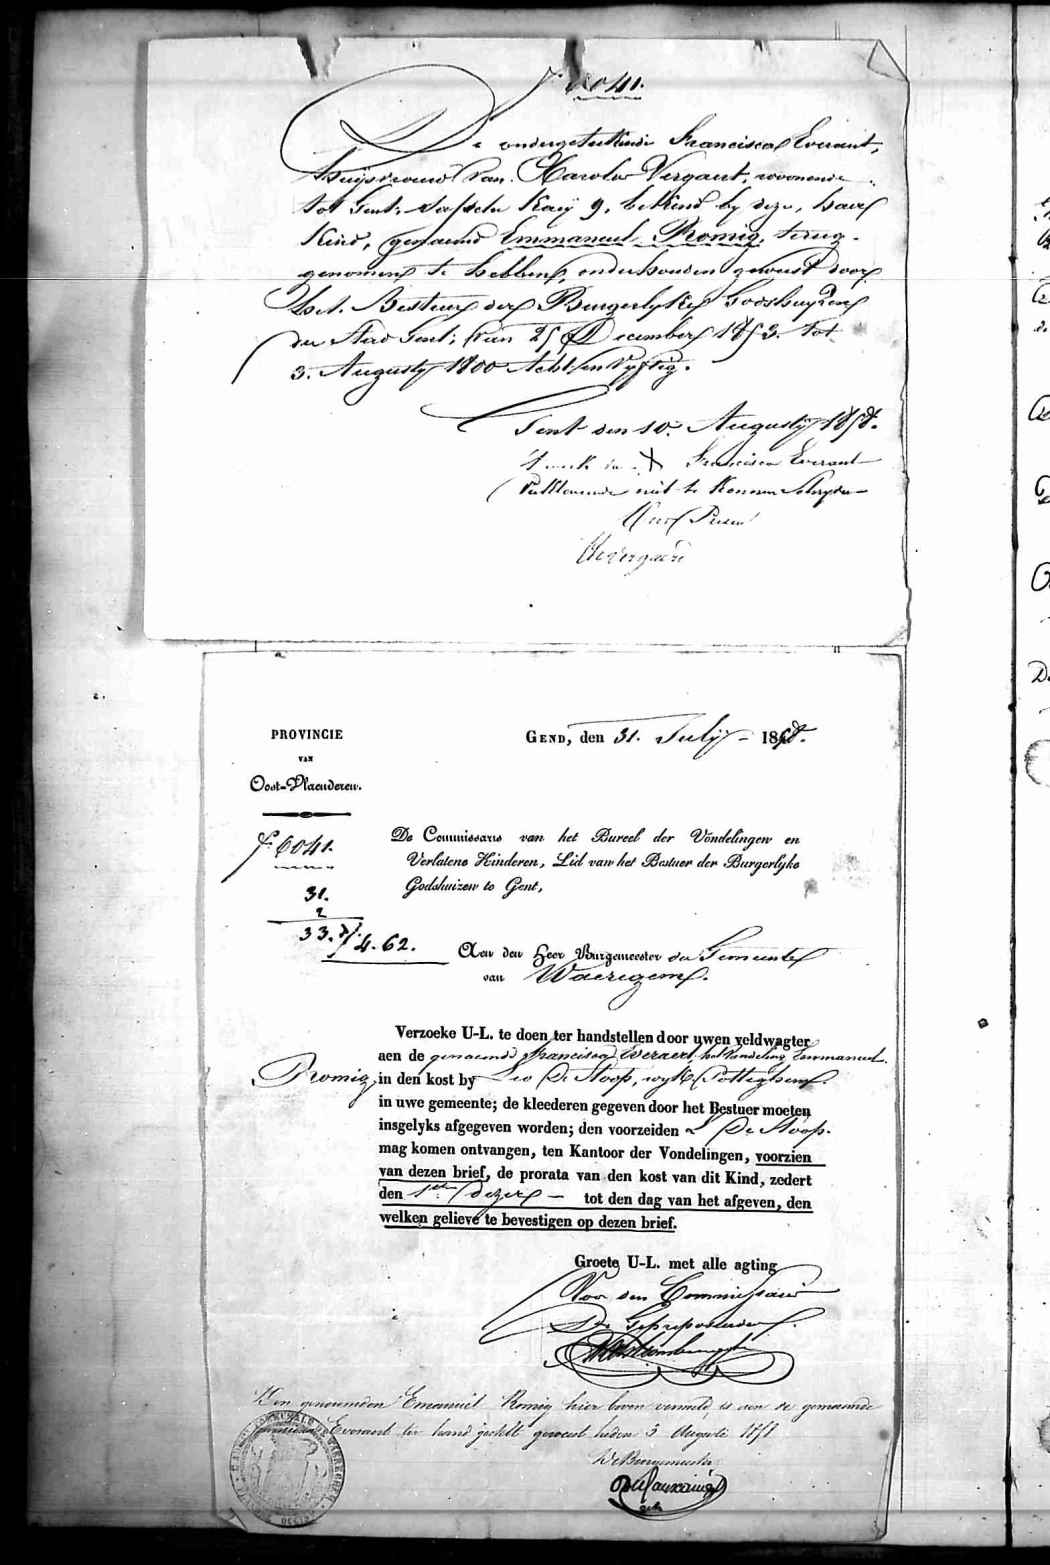 6041.
De ondergeteekende Francisca Everaert,
huijsvrouw van Karolus Vergaert, woonende
tot Gent, Kaij 9, bekend by deze, haer
Kind, genaemd Emmanuel Romig, terug
genomen te hebben, onderhouden geweest door
het Bestuer der Burgerlyke Godshuyzen
der Stad Gent, van 25 December 1853 tot
3. Augusty 1800 Acht en Vyftig.
Gent den 10. Augusty 1858.
t merk van X Francisca Everaert
verklarende niet te konnen schryven
PROVINCIE
VAN
Oost-Vlaenderen.
GEND, den 31. July 1858.
6041.
31.
2
33. 4.62.
De Commissaris van het Bureel der Vondelingen en
Verlatene Kinderen, Lid van het Bestuer der Burgerlyke
Godshuizen te Gent,
Aen den Heer Burgemeester der Gemeente
van Waeregem.
Verzoeke U-L. te doen ter handstellen door uwen veldwagter
aen de genaemde Francisca Everaert het Emmanuel
Romig, in den kost by Leo De Stoop, wyk Potteghem
in uwe gemeente; de kleederen gegeven door het Bestuer moeten
insgelyks afgegeven worden; den voorzeiden L De Stoop
mag komen ontvangen, ten Kantoor der Vondelingen, voorzien
van dezen brief, de prorata van den kost van dit Kind, zedert
den 1sten dezer tot den dag van het afgeven, den
welken gelieve te bevestigen op dezen brief.
Groete U-L. met alle agting
Voor den Commissaris
De Geproposeerden
Den genoemden Emanuel Romig hier boven vermeld, is aen de genaemde
Everaert ter hand gesteld geweest heden 3 Augusti 1858
De Burgemeester